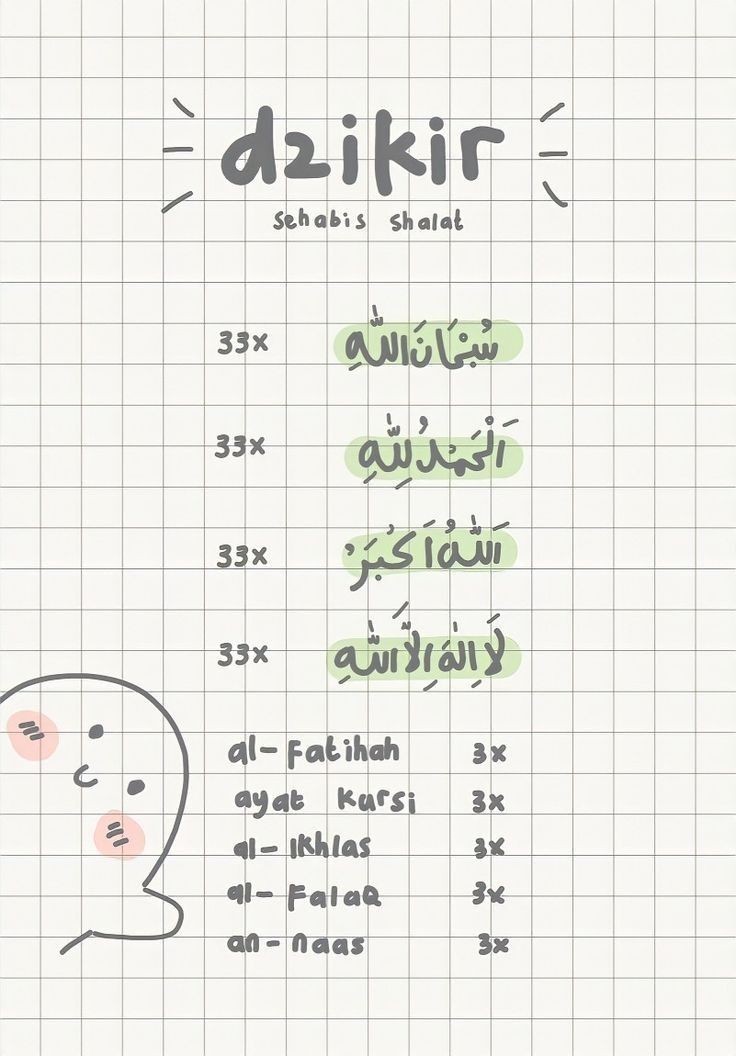 dzikir
sehabis shalat
33x سُبْحَانَ اللّٰهِ
33x اَلْحَمْدُ لِلّٰهِ
33x اَللّٰهُ اَكْبَرْ
33x لَا اِلٰهَ اِلَّا اللّٰهِ
al-Fatihah 3x
ayat kursi 3x
al-Ikhlas 3x
al-Falaq 3x
an-naas 3x